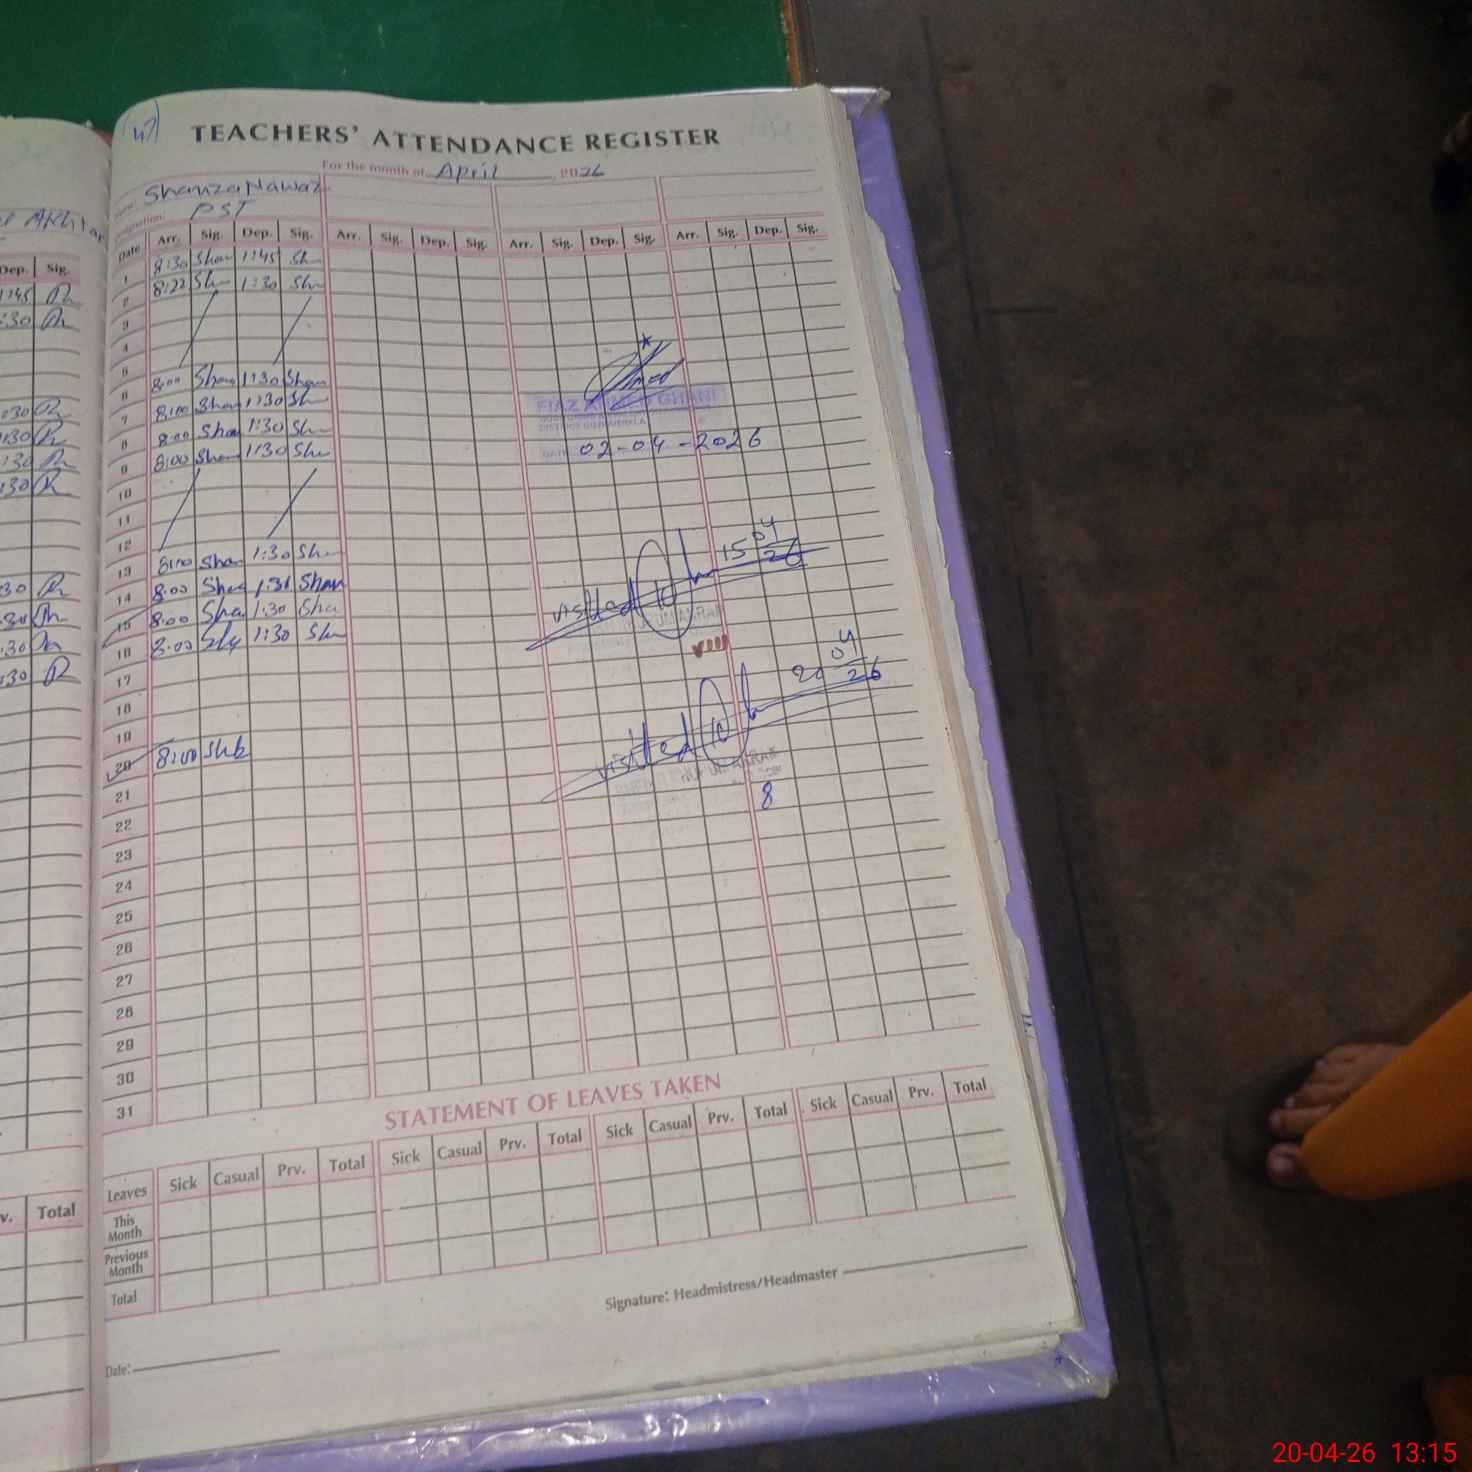 47
TEACHERS' ATTENDANCE REGISTER
For the month of April, 2026
Name: Shanza Nawaz
Designation: PST
Date Arr. Sig. Dep. Sig. Arr. Sig. Dep. Sig. Arr. Sig. Dep. Sig. Arr. Sig. Dep. Sig.
1 8:30 Shan 1:45 Sh
2 8:22 Sh 1:30 Sh
3
4
5
6 8:00 Shan 1:30 Shan
7 8:00 Shan 1:30 Sh
8 8:00 Sha 1:30 Sh
9 8:00 Shan 1:30 Sh
10
11
12
13 8:00 Sha 1:30 Sh
14 8:00 Sha 1:30 Shan
15 8:00 Sha 1:30 Sha
16 8:00 1:30 Sh
17
18
19
20 8:00
21
22
23
24
25
26
27
28
29
30
31
FIAZ AHMED GHANI
02-04-2026
visited 15 04 26
visited 20 04 26
8
STATEMENT OF LEAVES TAKEN
Leaves Sick Casual Prv. Total Sick Casual Prv. Total Sick Casual Prv. Total Sick Casual Prv. Total
This Month
Previous Month
Total
Signature: Headmistress/Headmaster
Date:
Akhtar
Dep. Sig.
1:45
:30
:30
1:30
:30
:30
30
:30
:30
:30
v. Total
20-04-26 13:15